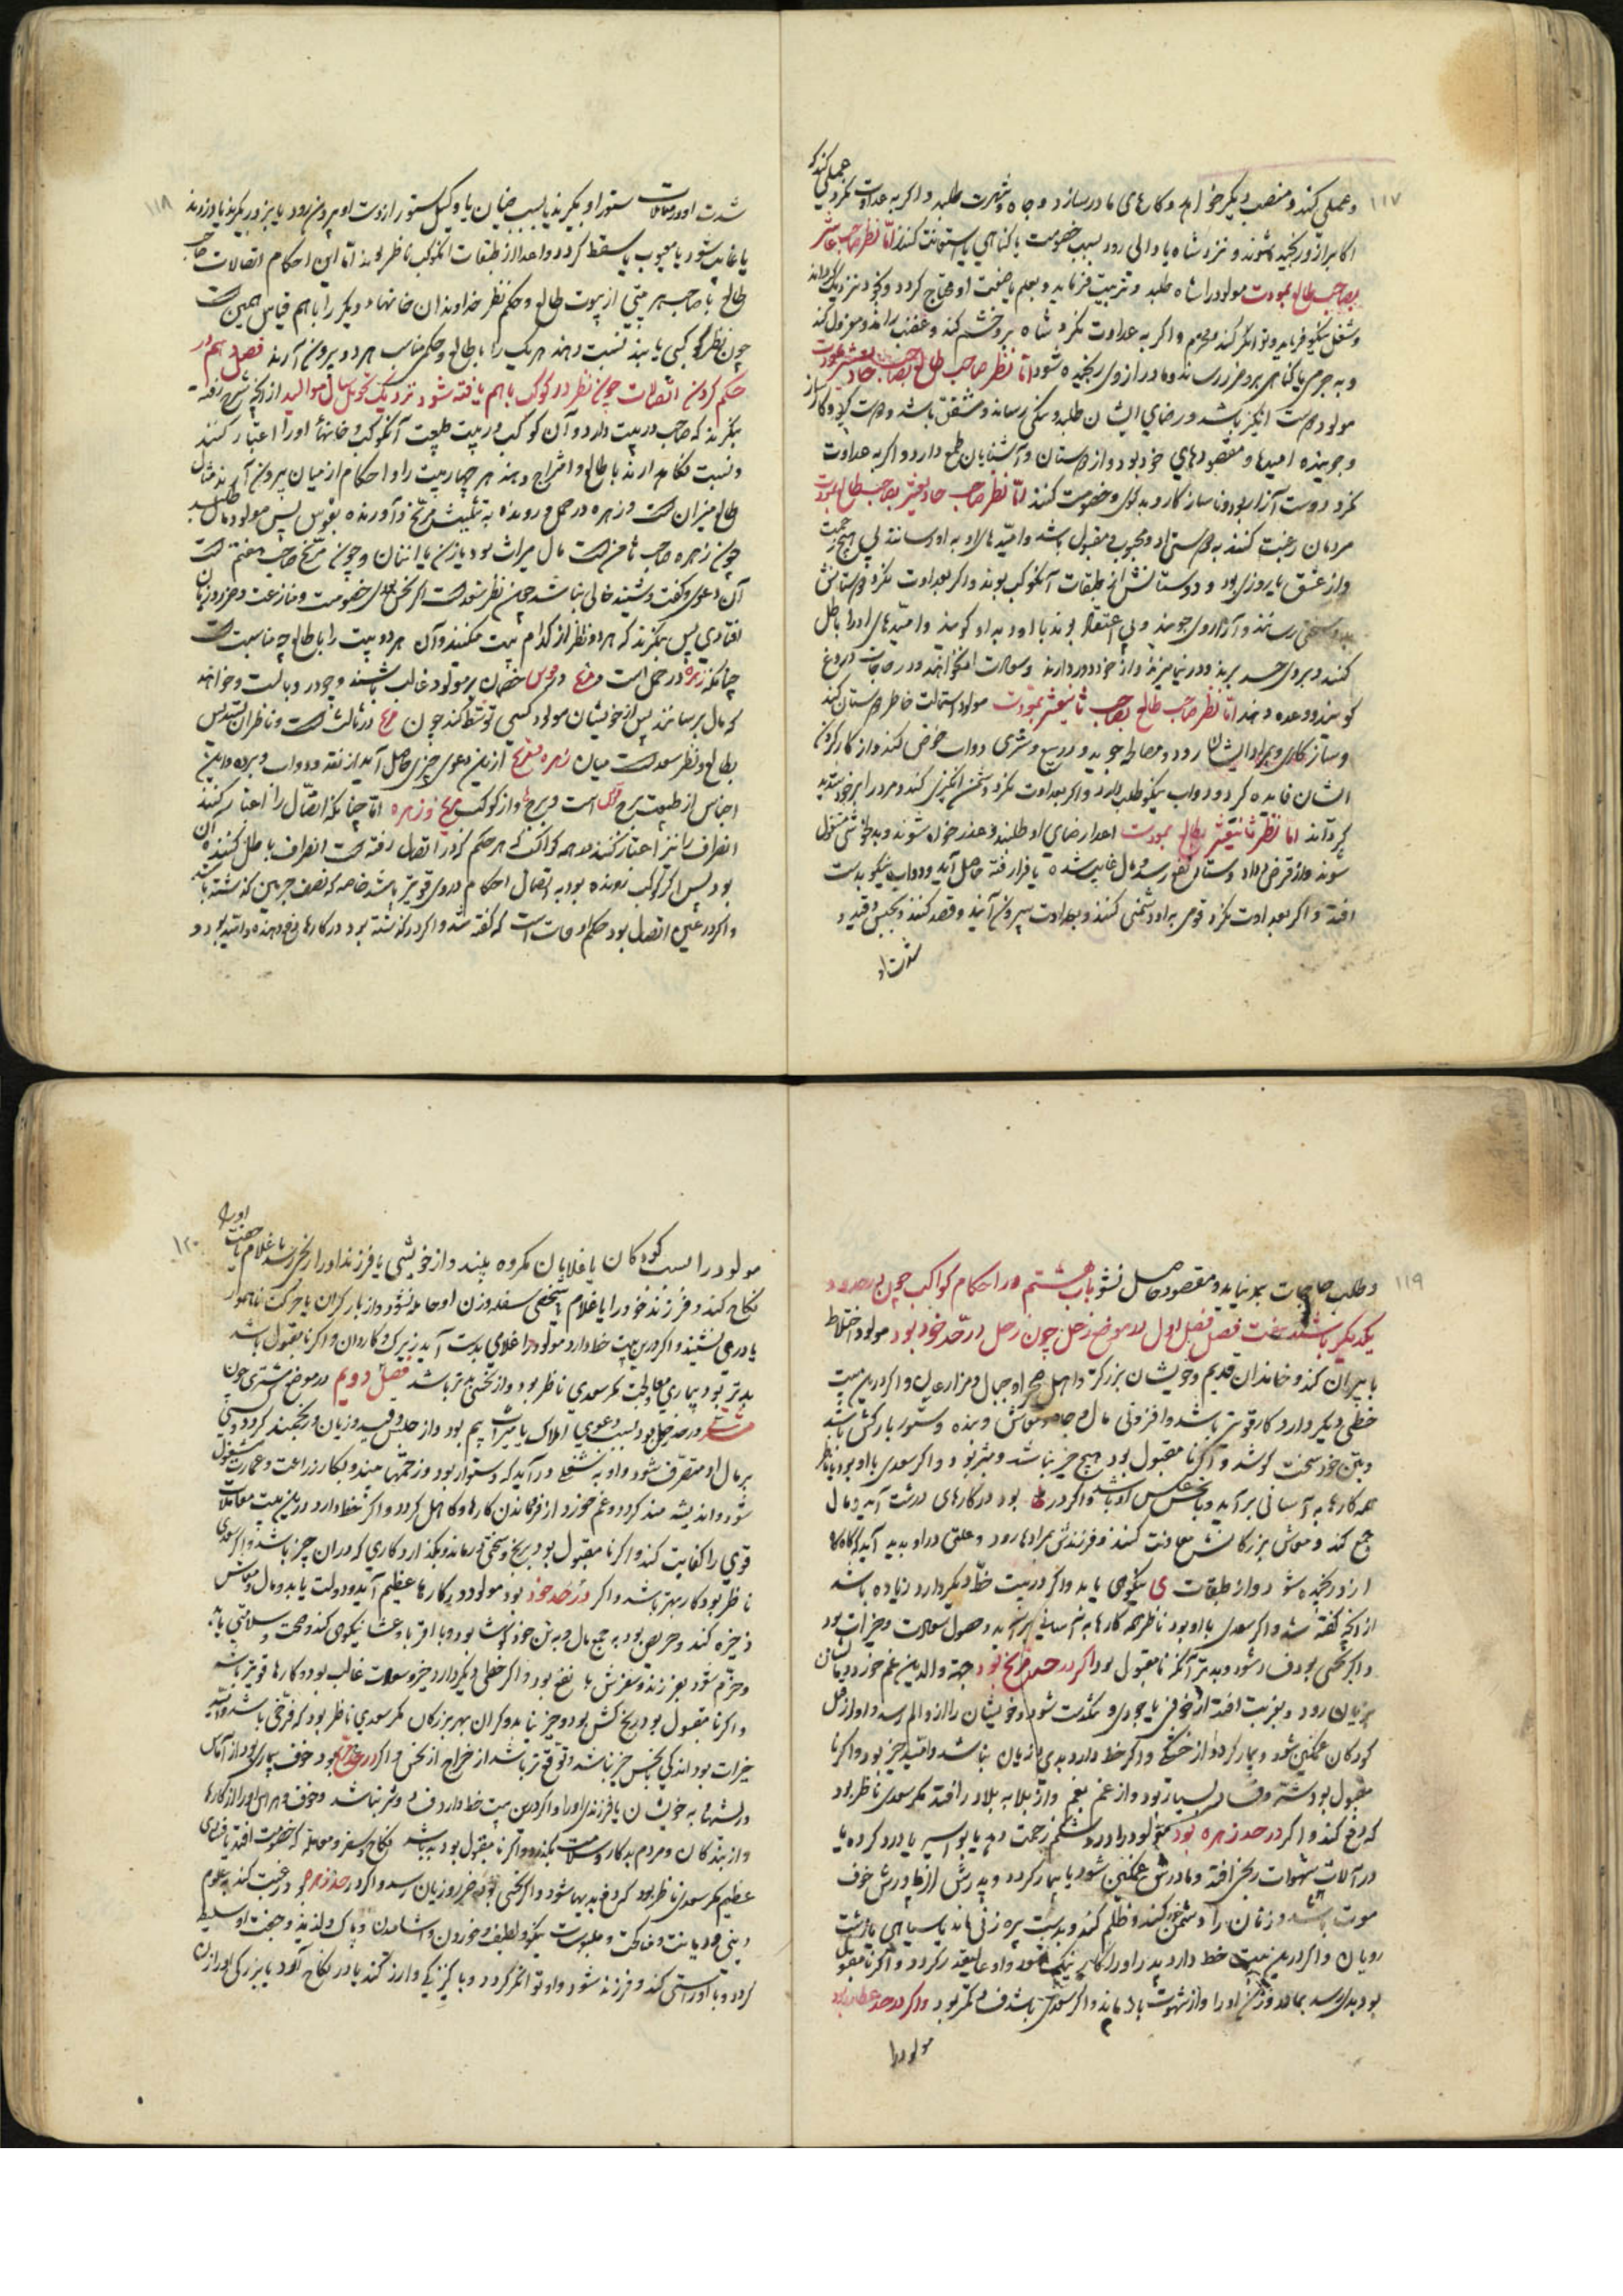 ۱۱۷
و عملی کند و منصب دیگر خواهد و کارهای مادر بسازد و جاه و شهرت طلبد و اگر به عداوت نگرد
اکابر ازو رنجیده شوند و نزد شاه یا والی رود بسبب خصومت یا گناهی یا استعانت کنند امّا نظر صاحب عاشر
بصاحب طالع بمودت مولود را شاه طلبد و تربیت فرماید و بعلم یا صنعت او محتاج گردد و بخود نزدیک گرداند
و شغل نیکو فرماید و توانگر کند و محترم و اگر به عداوت نگرد شاه برو خشم کند و غضب راند و معزول کند
و به جرمی یا گناهی برو ضرر رساند و مادر از وی رنجیده شود امّا نظر صاحب طالع بصاحب حادیعشر بمودت
مولود دوست انگیز باشد و رضای ایشان طلبد و نیکی رساند و مشفق باشد و دوست
و جوینده امیدها و مقصودهای خود بود و از دوستان و آشنایان طمع دارد و اگر به عداوت
نگرد دوست آزار بود و ناسازگار و بدگوی و خصومت کنند امّا نظر صاحب حادیعشر بصاحب طالع بمودت
مردمان رغبت کنند به دوستی او و محبوب و مقبول باشد و امّیدهای او به او رسانند بی هیچ زحمت
و از عشق با روزی بود و دوستانش از طبقات آن کوکب بوند و اگر بعداوت نگرد دوستانش
رسانند و آزار وی جویند و بی اعتقاد بوند با او و بد او گویند و امّیدهای او را باطل
کنند و بروی حسد برند و درنیامیزند و از خود دور دارند و سعادت او نخواهند و در حاجات دروغ
گویند و وعده دهند امّا نظر صاحب طالع بصاحب ثانیعشر بمودت مولود استمالت خاطر دوستان کند
و سازگاری و بمراد ایشان رود و مصالحه جوید و در بیع و شری دواب خوض کند و از کار کردن
ایشان فایده گیرد و دواب نیکو طلب دارد و اگر بعداوت نگرد دشمن انگیزی کند و مردم را بر خود بد
گرداند امّا نظر ثانیعشر بطالع بمودت اعدا رضای او طلبند و عذر خواه شوند و بدلخوشی مشغول
شوند و از قرض و داد و ستان نفع رسد و مال غایب شده یا فرار رفته حاصل آید و دواب نیکو بدست
افتد و اگر بعداوت نگرد قومی به او دشمنی کنند و بعداوت بیرون آیند و قصد کنند و بحبس و قید و
۱۱۸
شدت او در معاملات ستور او بگیرند یا بسبب ضمان یا وکیل ستور از دست او بیرون رود یا بزور بگیرند یا دزدند
یا غایب شود یا معیوب یا سقط گردد و اعدا از طبقات آن کوکب ناظر بوند امّا این احکام اتصالات صاحب
طالع با صاحب هر بیتی از بیوت طالع و حکم نظر خداوندان خانهاء دیگر را با هم قیاس همین است
چون نظر کوکبی یابند نسبت دهند هر یک را با طالع و حکم مناسب هر دو بیرون آرند فصل دهم در
حکم کردن اتصالات چون نظر دو کوکب با هم یافته شود نزدیک تحویل سال موالید از آنچه شرح رفته
بنگرند که صاحب دو بیت دارد و آن کوکب در بیت و طبیعت آن کوکب و خانهاء او را اعتبار کنند
و نسبت نگاه دارند با طالع و امتزاج دهند هر چهار بیت را و احکام از میان بیرون آرند مثال
طالع میزان است و زهره در حمل و رونده به تثلیث مریخ و آورنده بقوس پس مولود مال طلبد
چون زهره صاحب ثامن است مال میراث بود یا زن یا انتان و چون مریخ صاحب هفتم است
آن دعوی و گفت و شنید خالی نباشد چون نظر سعد است اگر نحس بودی خصومت و منازعت و ضرر و زیان
افتادی پس بنگرند که هر دو نظر از کدام بیت میکنند و آن هر دو بیت را با طالع چه مناسبت است
چنانکه زهره در حمل است خصمان بر مولود غالب باشند و چون در وبالست و خواهند
که مال برسانند پس از خویشان مولود کسی توسّط کند چون در ثالث است و ناظر ان بتسدیس
بطالع و نظر سعد است میان زهره مریخ ازین دعوی چیزی حاصل آید از نقد و دواب و برده و این
اجناس از طبیعت برج است و برج و از کوکب مریخ و زهره امّا چنانکه اتّصال را اعتبار کنند
انصراف را نیز اعتبار کنند در همه کواکب که هر حکم که در اتصال رفته است انصراف باطل کننده آن
بود پس اگر کوکب رونده بود به اتصال احکام در وی قویتر باشد خاصه که نصف جرمین گذشته باشد
و اگر در عین اتصال بود حکم اوفات است که گفته شد و اگر در گذشته بود در کارها دفع دهنده و امّید بود و
۱۱۹
و طلب حاجات بر نیاید و مقصود حاصل نشود باب هشتم در احکام کواکب چون در حدود
یکدیگر باشند هفت فصل فصل اول در موضع زحل چون زحل در حدّ خود بود مولود اختلاط
با پیران کند و خاندان قدیم و خویشان بزرگتر و اهل صحرا و جبال و مزارعین و اگر درین بیت
خطی دیگر دارد کار قویتر باشد و افزونی مال و جاه و معاش دهنده و ستور بارکش باشد
و بتن خود سخت کوشد و اگر نا مقبول بود هیچ چیز نباشد و بتر بود و اگر سعدی با او بود یا ناظر
همه کارها به آسانی برآید و بنحس عکس او باشد و اگر در حد بود در کارهای درشت آید و مال
جمع کند و معاش بزرگانش معاونت کنند و فرزندش بمرادها رود و علتی در او پدید آید گاه گاه
ازو رنجیده شود و از طبقات ی نیکویی یابد و اگر در بیت خطّ دیگر دارد زیاده باشد
از آنچه گفته شد و اگر سعدی با او بود ناظر همه کارها به آسانی برآید و حصول سعادت و خیرات بود
و اگر نحسی بود فساد شود و بدتر آنگه نا مقبول بود اگر در حد مریخ بود جهة والدین غم خورد و بیم
بزیان رود و بغربت افتد از خوفی یا بجوری و نکدت شود و خویشان را ازو الم رسد و او از قبل
کودکان غمگین شود و بیمار گردد از خستگی و اگر خط دارد بدی و زیان نباشد و امّید خیر بود و اگر نا
مقبول بود شدّت و فساد بسیار بود و از غم بغم و از بلا به بلا درافتد مگر سعدی ناظر بود
که دفع کند و اگر در حد زهره بود مولود را درد شکم زحمت دهد یا بواسیر یا درد گرده یا
در آلات شهوات رنجی افتد و مادرش غمگین شود یا بیمار گردد و پدرش از مادرش خوف
موت باشد و زنان را دشمن کند و ظلم کند و بدست پیره زنی ماند یا سیاهی یا زشت
رویان و اگر درین بیت خط دارد پدر او را کار نیک شود و او عالیقدر گردد و اگر نا مقبول
بود بدی رسد بمادر و زن او را و از شهوت باز ماند و اگر سعدی باشد فساد کمتر بود و اگر در حد عطارد بود
مولود را
۱۲۰
مولود را بسبب کودکان یا غلامان مکروه بیند و از خویشی یا فرزند او را رنجی رسد یا غلام یا
نکاح کند و فرزند خود را یا غلام یا شخصی سفله و زن او حامله نشود و از بار گران یا حرکت ناهموار
یا دردی نشیند و اگر درین بیت خط دارد مولود را غلامی بدست آید زیرک و کاردان و اگر نا مقبول باشد
بدتر بود و بیماری معاودت مگر سعدی ناظر بود و از نحسی بدتر باشد فصل دویم در موضع مشتری چون
مشتری در حد زحل بود بسبب دعوی املاک یا میراث بیم بود و از حبس و قید و زیان و رنجمند گردد و کسی
بر مال او متصرّف شود و او به شغلی درآید که دشوار بود و زحمتها بیند و بکار زراعت و عمارت مشغول
شود و اندیشه مند گردد و غم خورد از فرماندن کارها و کاهل گردد و اگر خط دارد درین بیت معاملات
قوی را کفایت کند و اگر نا مقبول بود برنج و سختی درماند و بگذارد کاری که در آن چیز باشد و اگر سعدی
ناظر بود کار بهتر باشد و اگر در حد خود بود مولود در کارها عظیم آید و دولت یابد و مال و معاش
ذخیره کند و حریص بود به جمع مال و به تن خود کوشا بود و با اقربا و عشایر نیکویی کند و صحت و سلامتی یابد
و خرّم شود بفرزند و سفرش با نفع بود و اگر خطی دیگر دارد خیر و سعادت غالب بود و کارها قویتر باشد
و اگر نا مقبول بود رنج کش بود و چیز نیابد و گران بهر بزرگان مگر سعدی ناظر بود که فرّخی باشد و امّید
خیرات بود اندکی بنحس چیز نباشد و توقع تر باشد از خراج از نحس و اگر در حد مریخ بود خوف بیماری بود از آماس
و ریشها به خویشان یا فرزند او را و اگر درین بیت خط دارد فساد و شر نباشد و خوف و هراس او را از کارها
و از بندگان و مردم بدکار و بسلامت بگذرد و اگر نا مقبول بود بد باشد نکاح و سفر و معامله که خصومت افتد یا فسادی
عظیم مگر سعدی ناظر بود که دفع بدیها شود و اگر نحسی بود ضرر و زیان رسد و اگر در حد زهره بود رغبت کند به علوم
دینی و دیانت و مناکحت و ملبوسات نیکو و لطیف و خوردن و آشامیدن و پاک و لذیذ و جفت او سلیط
گردد و با او راستی کند و فرزند شود و او توانگر گردد و با کنیزکی وارد کند یا در نکاح آورد یا بزرگی او را زن